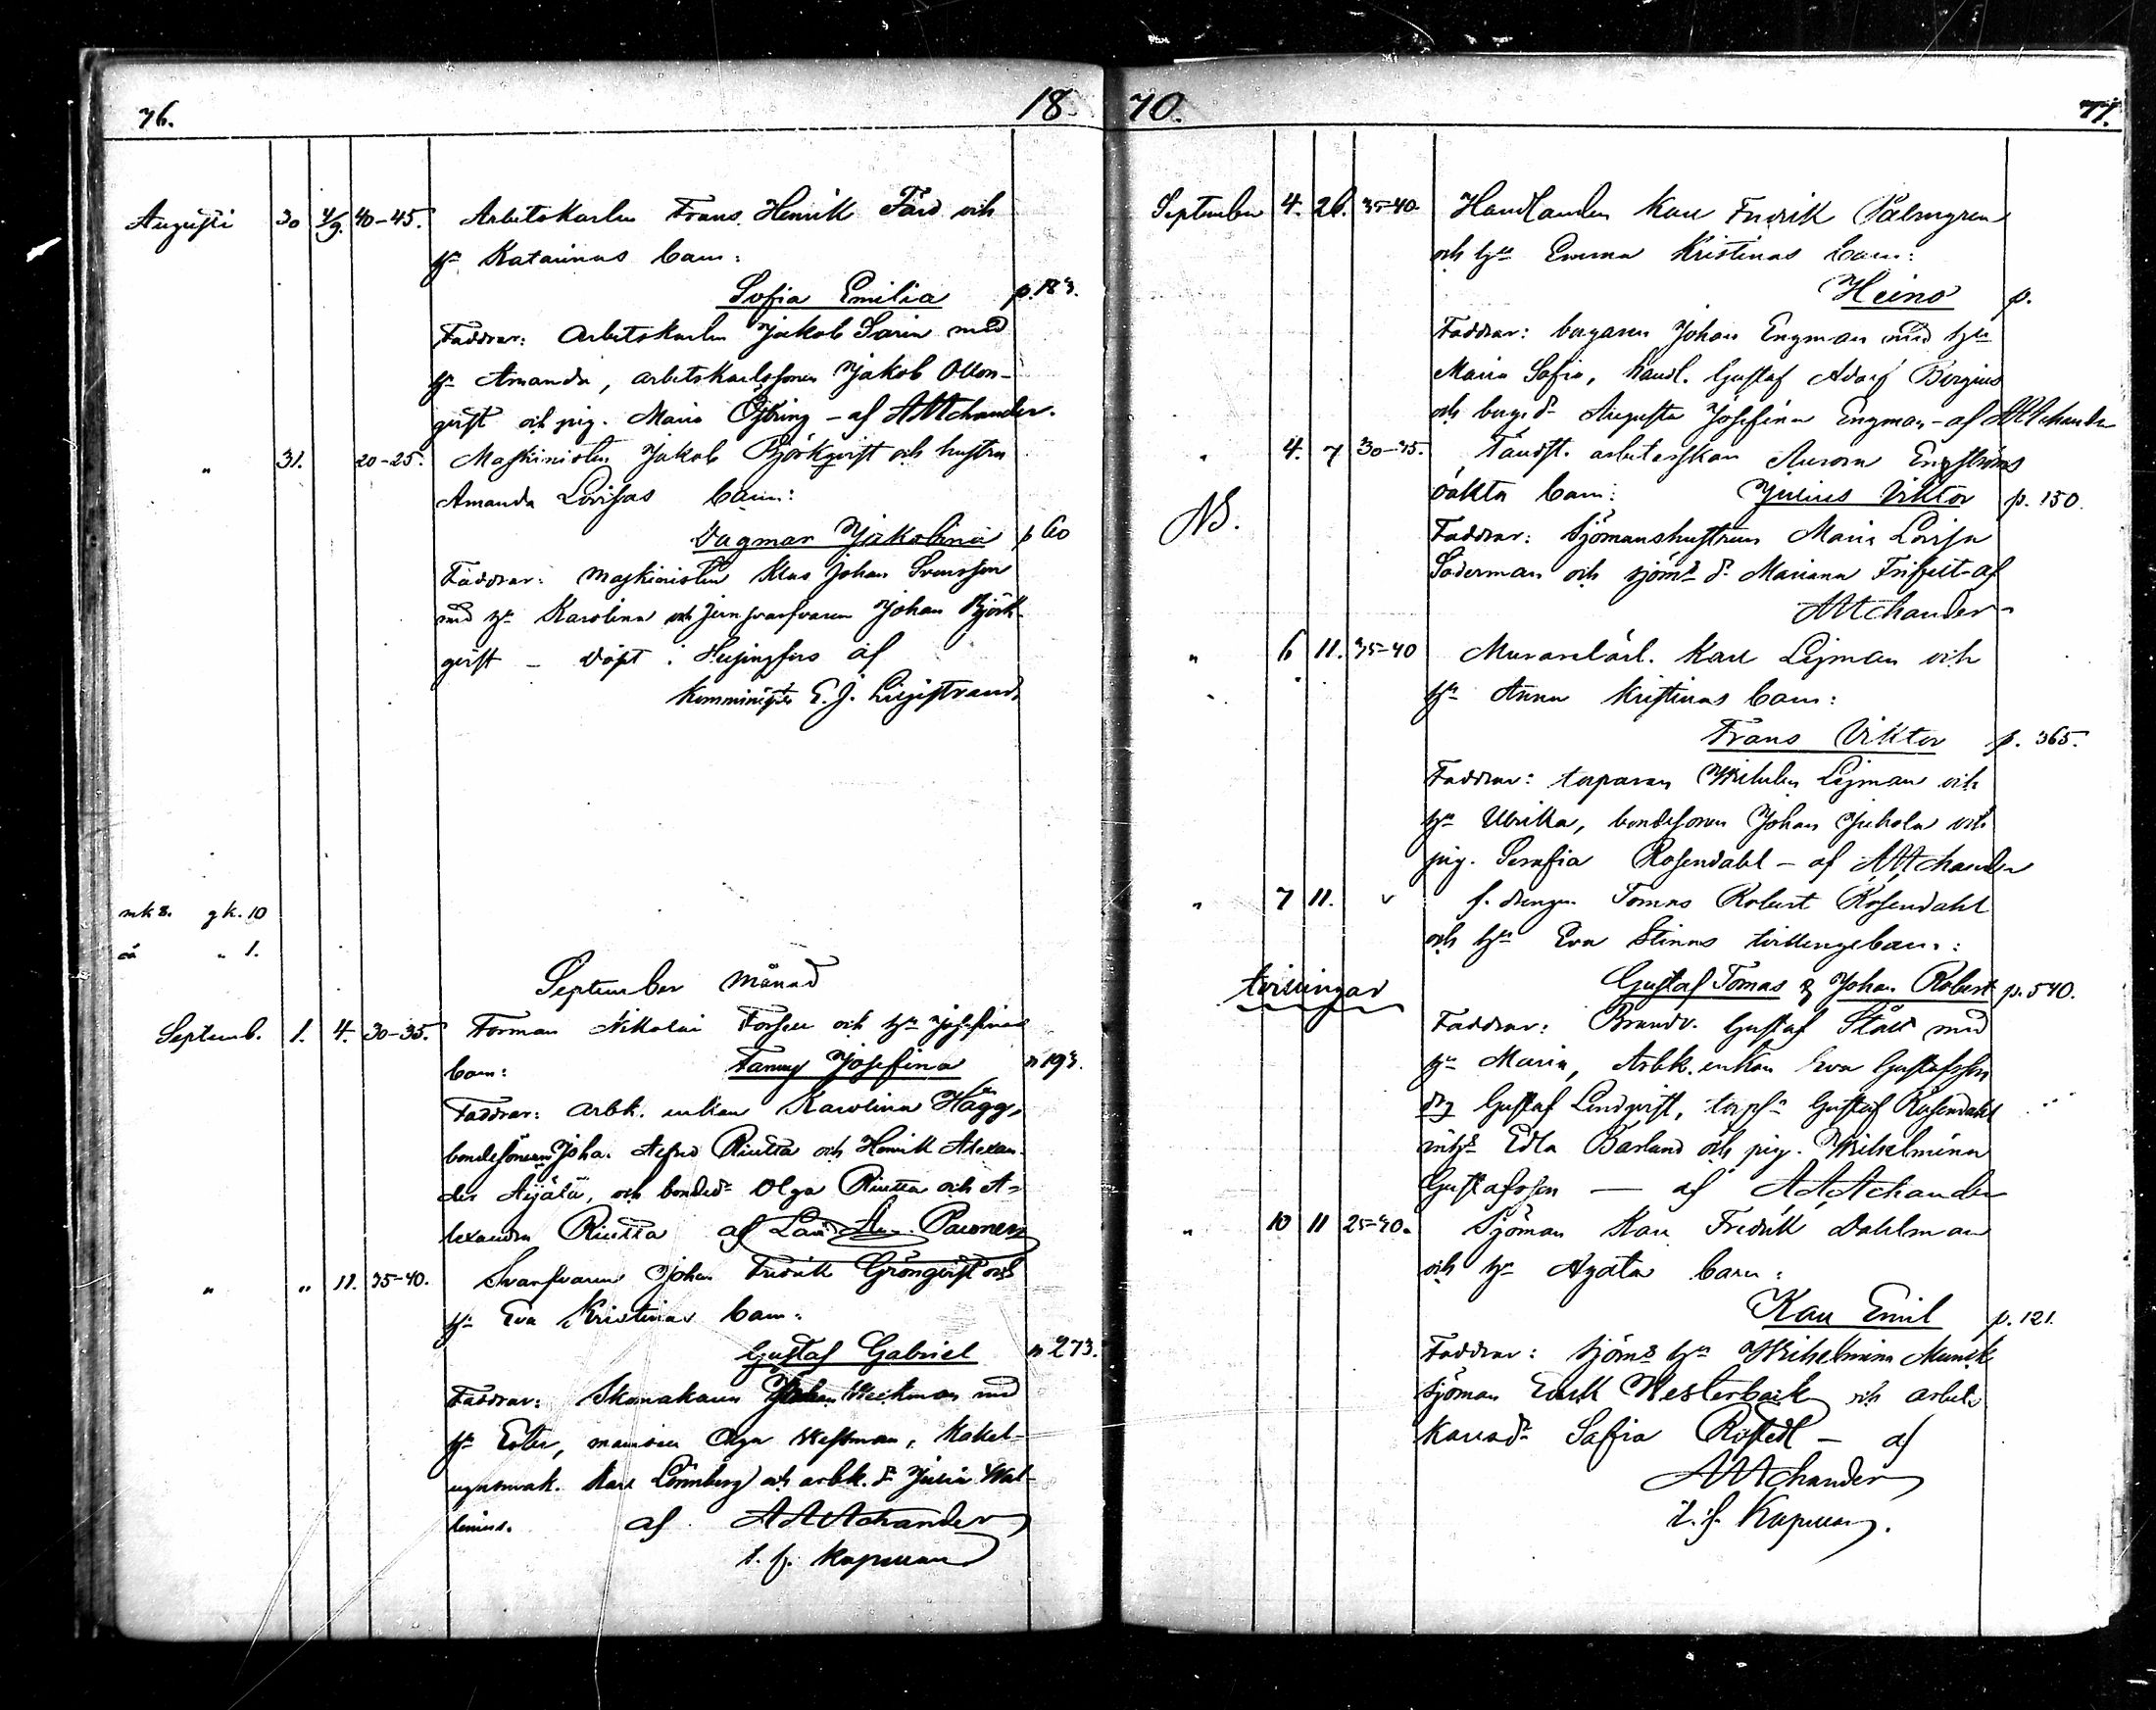 76. 18
Augusti 30 4/9. 40-45. Arbetskarlen Frans Henrik Färd och
hu Katarinas barn:
Sofia Emilia p. 183.
Faddrar: Arbetskarlen Jakob Sarin med
hu Amanda, arbetskarlssonen Jakob Ollon-
qvist och pig. Maria Öjbring - af AAAchander.
" 31. 20-25. Maskinisten Jakob Björkqvist och hustru
Amanda Lovisas barn:
Dagmar Jakobina p 60
Faddrar: Maskinisten Klas Johan Svensson
med hu Karolina och jernsvarfvaren Johan Björk-
qvist - döpt i Helsingfors af
Komminister E. J. Liljestrand.
mk 8. qk. 10
oä " 1.
September månad
Septemb. 1. 4. 30-35. Forman Nikolai Forsell och hu Josefinas
barn: Fanny Josefina p 193.
Faddrar: arbk. enkan Karolina Hägg,
bondesönerna Joha. Alfred Riutta och Henrik Alexan-
der Äijälä, och bonded. Olga Riutta och A-
lexandra Riutta af
" " 11. 35-40. Svarfvaren Johan Fredrik Grönqvist och
hu Eva Kristinas barn:
Gustaf Gabriel p 273.
Faddrar: Skomakaren Johan Weckman med
hu Ester, mamsell Olga Wessman, Kakel-
ugnsmak. Karl Lönnberg och arbk. d. Julia Wal-
lenius. af AAAchander
t. f. Kapellan
70. 77.
September 4. 26. 35-40. Handlanden Karl Fredrik Palmgren
och hu Emma Kristinas barn:
Heino p.
Faddrar: borgaren Johan Engman med hu
Maria Sofia, handl. Gustaf Adolf Bergius
och borg. d. Augusta Josefina Engman - af AAAchander
" 4. 7 30-35. Tändst. arbeterskan Aurora Engströms
NB. oäkta barn: Julius Viktor p. 150.
Faddrar: Sjömanshustrun Maria Lovisa
Söderman och sjöm. d. Mariana - af
AAAchander
" 6 11. 35-40 Murarelärl. Karl Lijman och
hu Anna Kristinas barn:
Frans Viktor p. 365.
Faddrar: torparen Wilhelm Lijman och
hu Ulrika, bondesonen Johan Juhola och
pig. Serafia Rosendahl - af AAAchander
" 7 11. " f. drengen Tomas Robert Rosendahl
och hu Eva Stinas tvillingebarn:
tvillingar Gustaf Tomas & Johan Robert p. 540.
Faddrar: Brandv. Gustaf Ståhl med
hu Maria, Arbk. enkan Eva Gustafsson
drg Gustaf Lindqvist, torps. Gustaf Rosendahl
Edla Barlund och pig. Wilhelmina
Gustafsson — af AAAchander
" 10 11 25-30. Sjöman Karl Fredrik Dahlman
och hu Agata barn:
Karl Emil p. 121.
Faddrar: Sjöm. hu Wilhelmina Munck
sjöman Erik Westerback och arbets
karlsd. Sofia Rostedt - af
AAAchander
t. f. Kapellan.